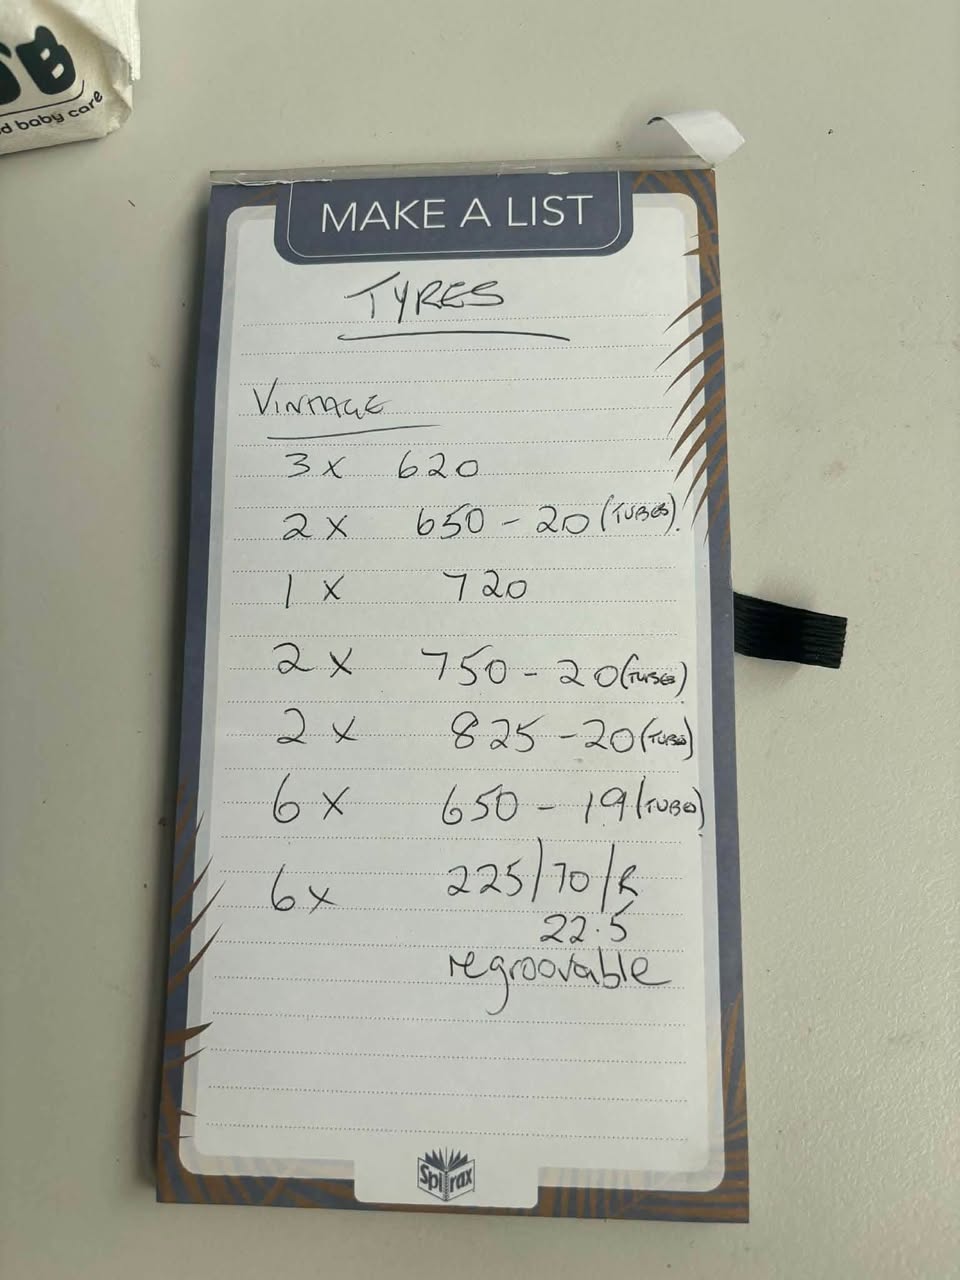 SB
d baby care
MAKE A LIST
TYRES
VINTAGE
3 x 620
2 x 650 - 20 (TUBES).
1 x 720
2 x 750 - 20 (TUBES)
2 x 825 - 20 (TUBES)
6 x 650 - 19 (TUBES)
6 x 225/70/R
22.5
regroovable
Spirax